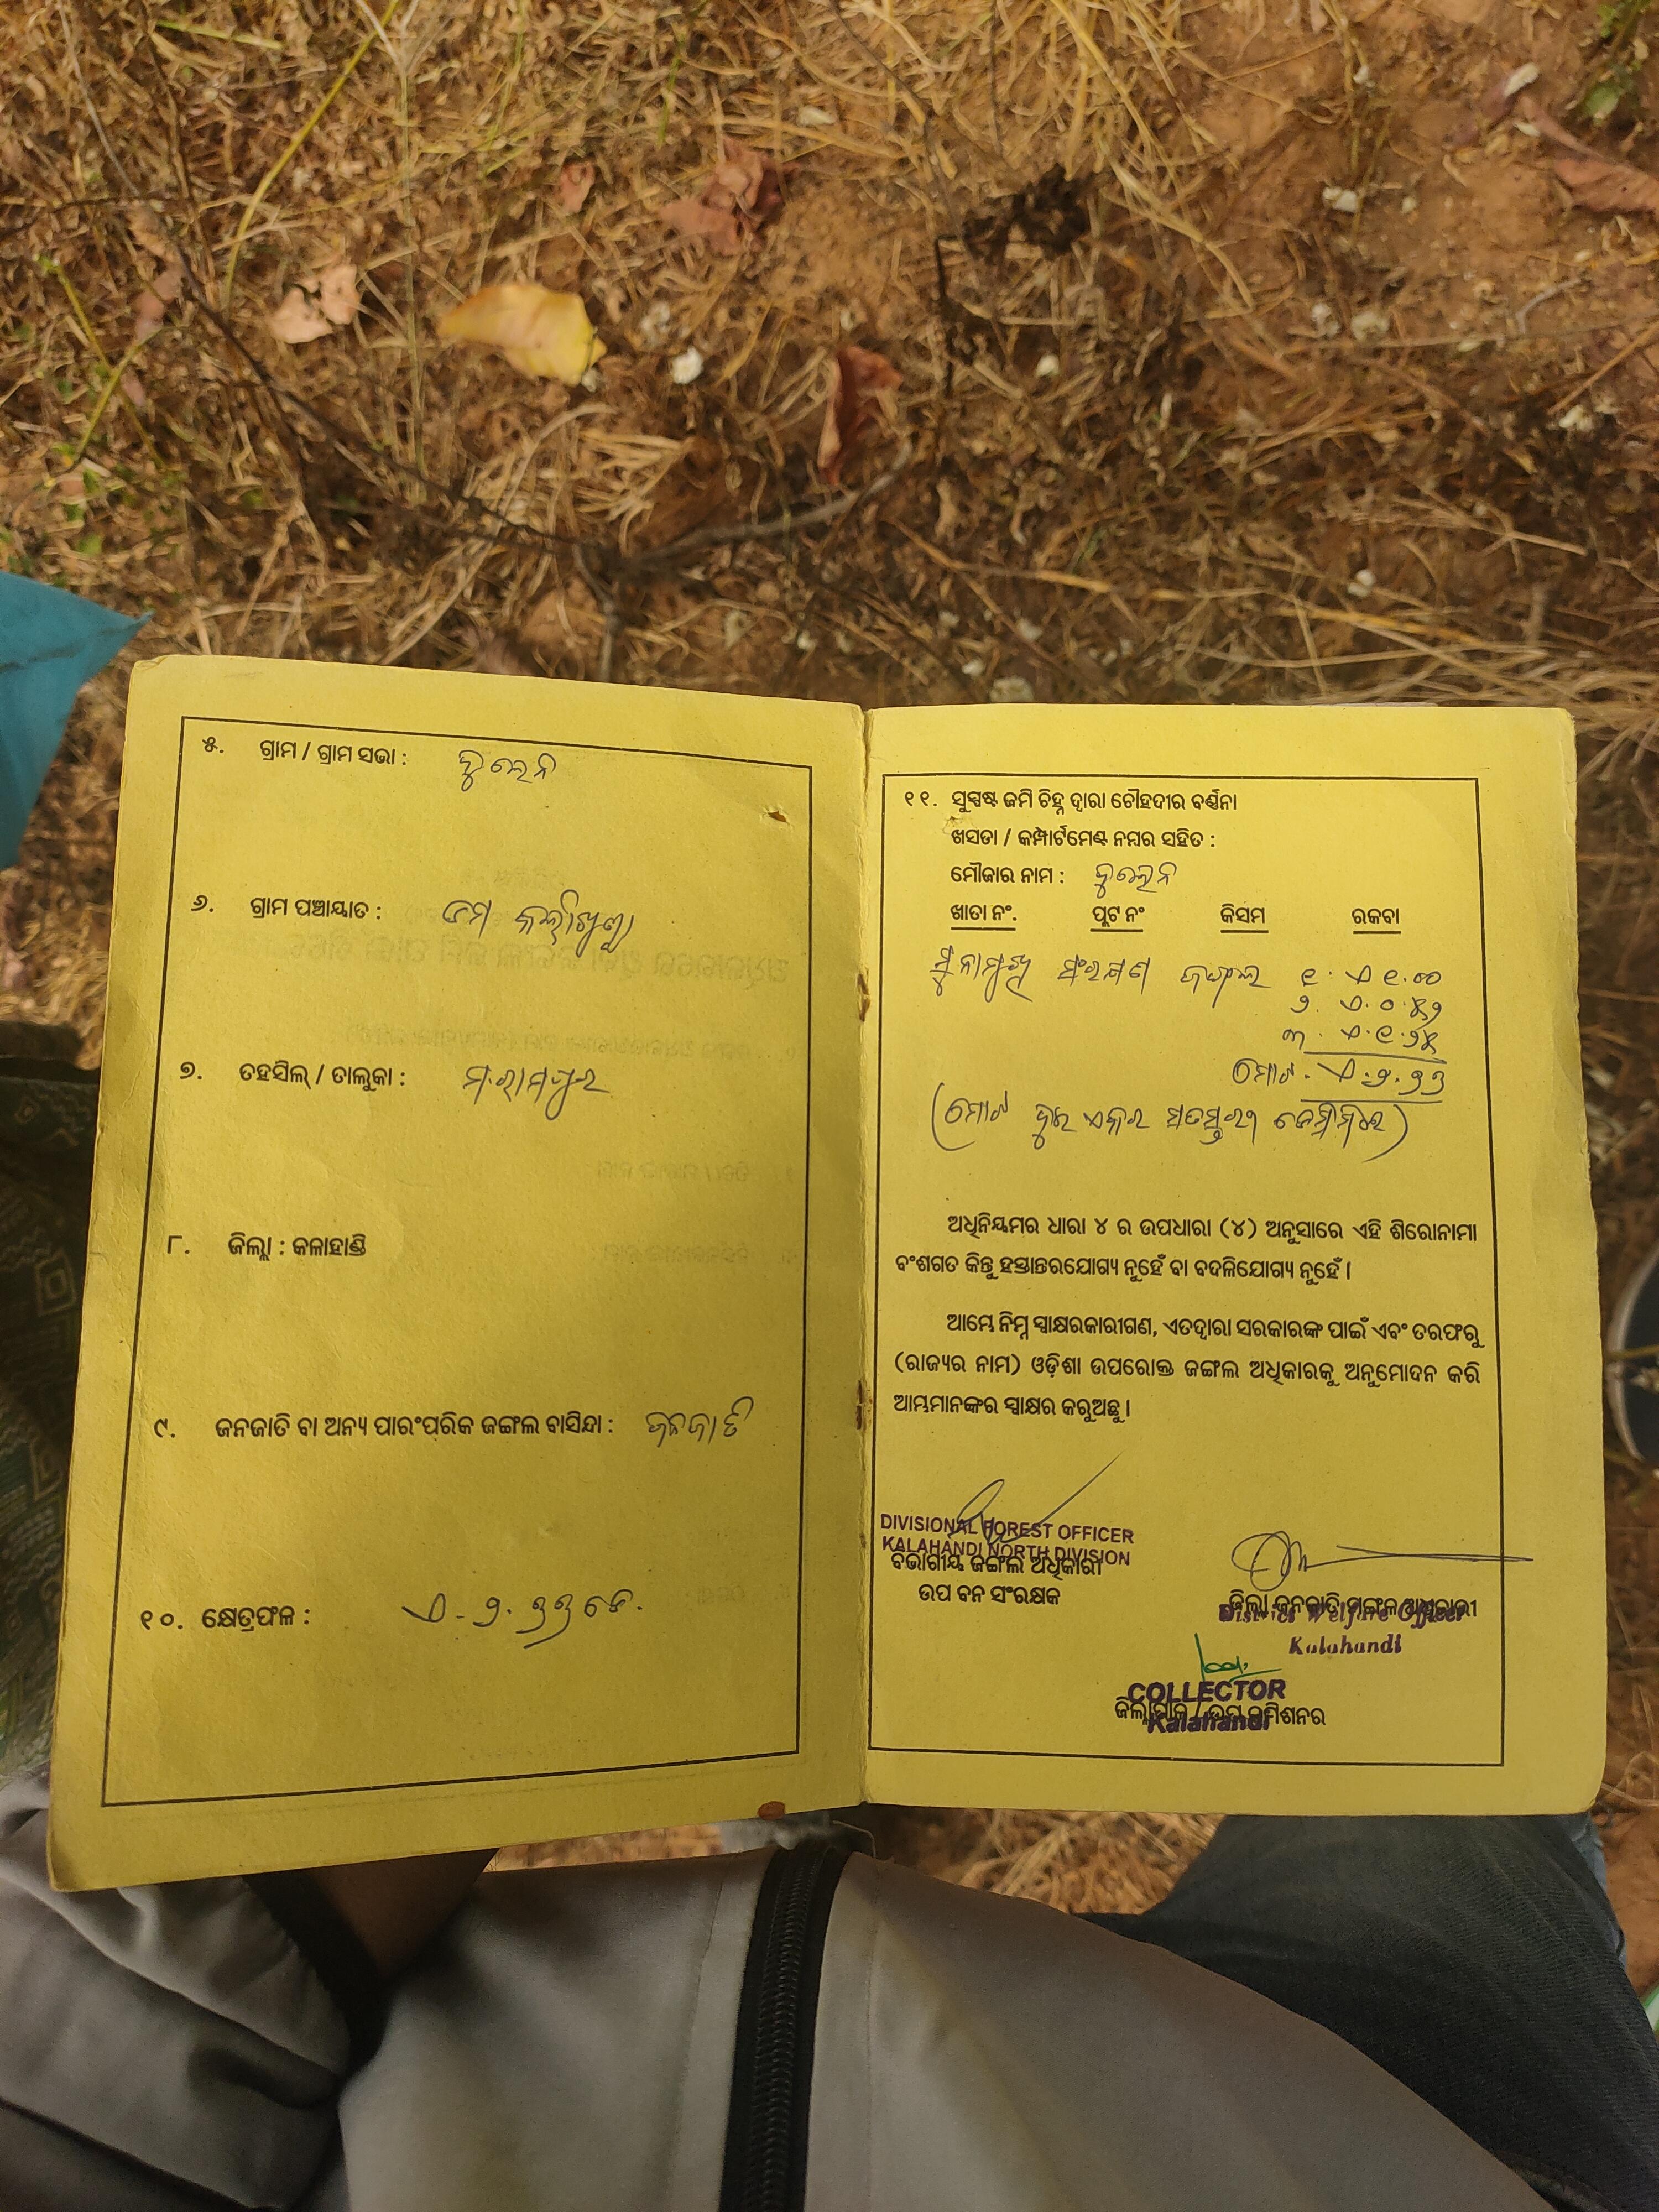 ୫. ଗ୍ରାମ / ଗ୍ରାମ ସଭା : ଦୁଲେନି
୬. ଗ୍ରାମ ପଞ୍ଚାୟାତ :
୭. ତହସିଲ୍ / ତାଲୁକା : ମ.ରାମପୁର
୮. ଜିଲ୍ଲା : କଳାହାଣ୍ଡି
୯. ଜନଜାତି ବା ଅନ୍ୟ ପାରଂପରିକ ଜଙ୍ଗଲ ବାସିନ୍ଦା : ଜନଜାତି
୧୦. କ୍ଷେତ୍ରଫଳ : ଏ - ୨.୭୭ ଡେ.
୧୧. ସୁସ୍ପଷ୍ଟ ଜମି ଚିହ୍ନ ଦ୍ୱାରା ଚୌହଦୀର ବର୍ଣ୍ଣନା
ଖସଡା / କମ୍ପାର୍ଟମେଣ୍ଟ ନମ୍ବର ସହିତ :
ମୌଜାର ନାମ : ଦୁଲେନି
ଖାତା ନଂ. ପ୍ଲଟ ନଂ କିସମ ରକବା
ସଂରକ୍ଷଣ ଜଙ୍ଗଲ ୧. ଏ ୧.୦୦
୨. ଏ. ୦.୫୨
୩. ଏ. ୧.୨୫
ମୋଟ - ଏ.୨.୭୭
(ମୋଟ ଦୁଇ ଏକର ସତସ୍ତରୀ ଡେସିମିଲ)
ଅଧିନିୟମର ଧାରା ୪ ର ଉପଧାରା (୪) ଅନୁସାରେ ଏହି ଶିରୋନାମା
ବଂଶଗତ କିନ୍ତୁ ହସ୍ତାନ୍ତରଯୋଗ୍ୟ ନୁହେଁ ବା ବଦଳିଯୋଗ୍ୟ ନୁହେଁ ।
ଆମ୍ଭେ ନିମ୍ନ ସ୍ୱାକ୍ଷରକାରୀଗଣ, ଏତଦ୍ୱାରା ସରକାରଙ୍କ ପାଇଁ ଏବଂ ତରଫରୁ
(ରାଜ୍ୟର ନାମ) ଓଡ଼ିଶା ଉପରୋକ୍ତ ଜଙ୍ଗଲ ଅଧିକାରକୁ ଅନୁମୋଦନ କରି
ଆମ୍ଭମାନଙ୍କର ସ୍ୱାକ୍ଷର କରୁଅଛୁ ।
DIVISIONAL FOREST OFFICER
KALAHANDI NORTH DIVISION
ବିଭାଗୀୟ ଜଙ୍ଗଲ ଅଧିକାରୀ
ଉପ ବନ ସଂରକ୍ଷକ
ଜିଲ୍ଲା ଜନଜାତି ମଙ୍ଗଳ ଅଧିକାରୀ
District Welfare Officer
Kalahandi
COLLECTOR
ଜିଲ୍ଲାପାଳ / ଉପ କମିଶନର
Kalahandi